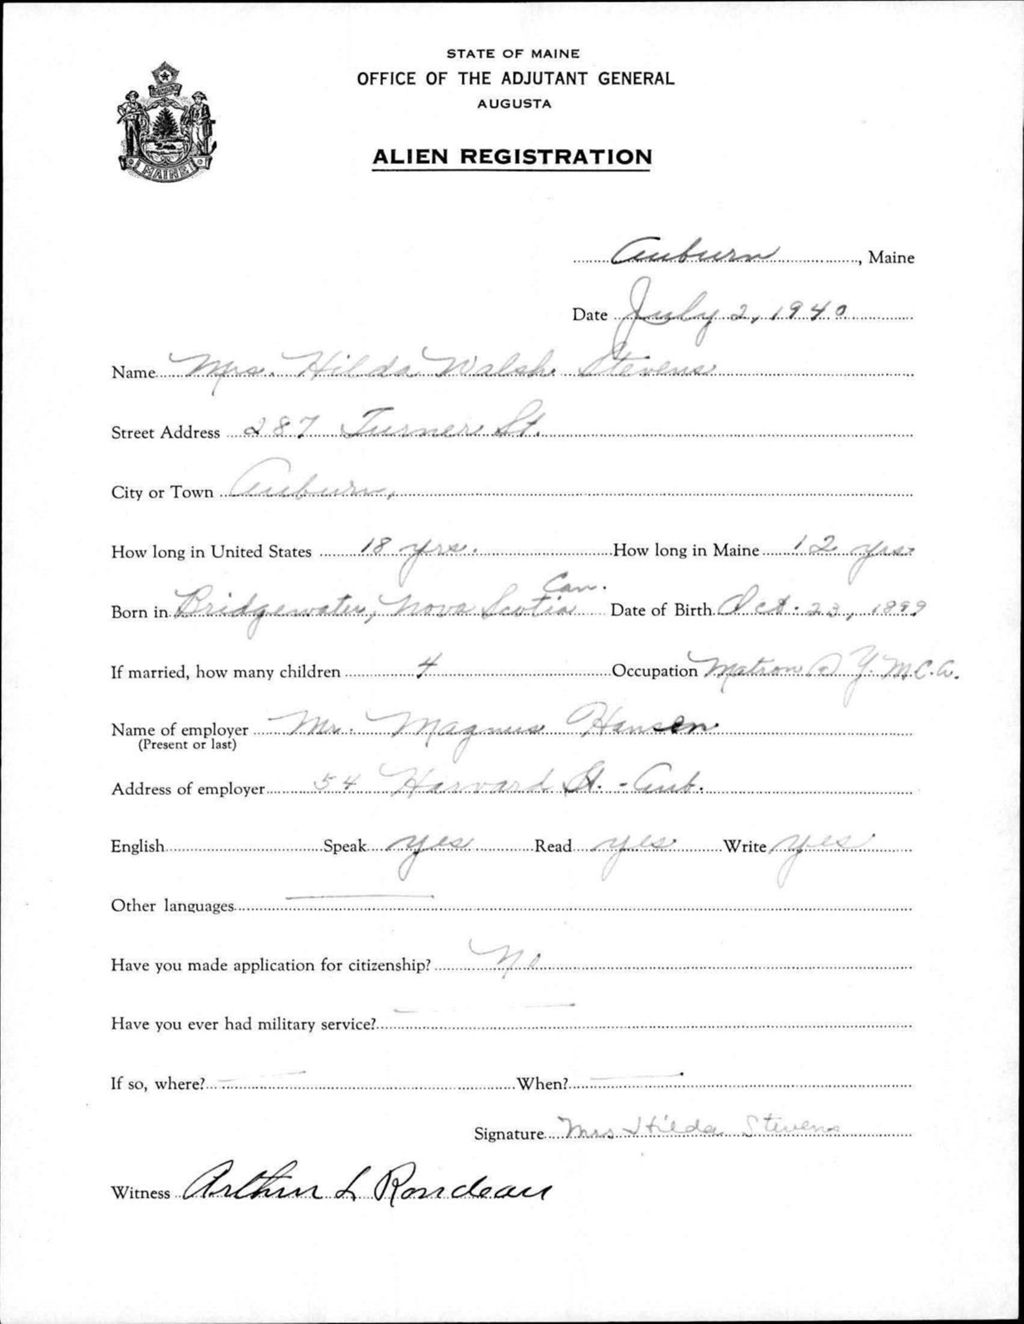 STATE OF MAINE
OFFICE OF THE ADJUTANT GENERAL
AUGUSTA
ALIEN REGISTRATION
MAINE
Auburn, Maine
Date July 2, 1940
Name Mrs. Hilda Walsh Stevens
Street Address 287 Turner St.
City or Town Auburn,
How long in United States 18 yrs. How long in Maine 12 yrs.
Born in Bridgewater, Nova Scotia Can. Date of Birth Oct. 23, 1899
If married, how many children 4 Occupation Matron Y.M.C.A.
Name of employer Mr. Magnus Hansen
(Present or last)
Address of employer 54 Harvard St. - Aub.
English Speak yes Read yes Write yes
Other languages
Have you made application for citizenship? No
Have you ever had military service?
If so, where? When?
Signature Mrs Hilda Stevens
Witness Arthur L Rondeau